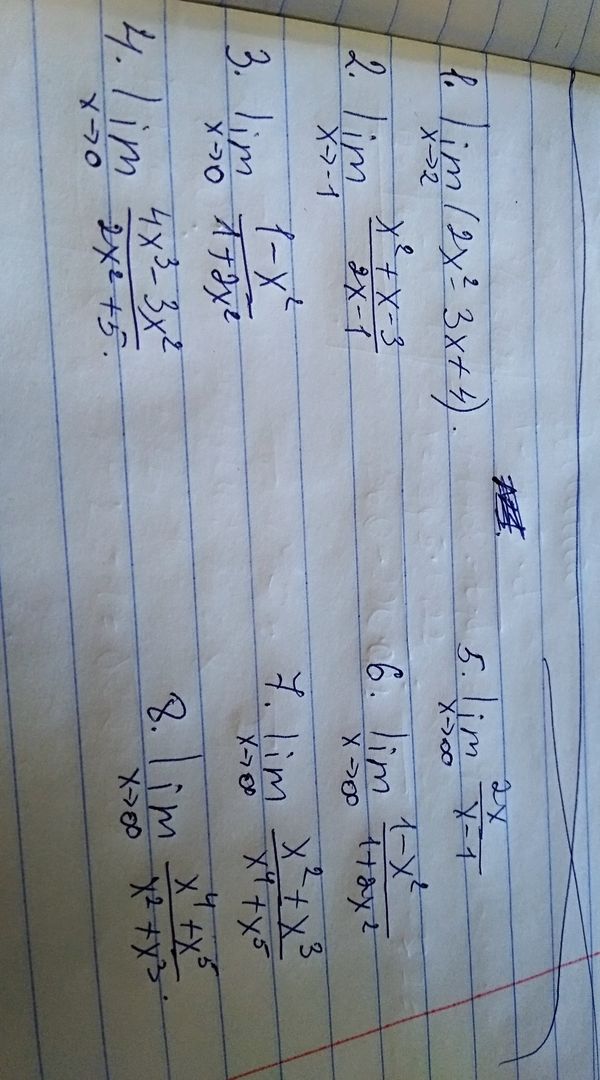 1. lim x→2 (2x² - 3x + 4).
2. lim x→-1 (x² + x - 3)/(2x - 1)
3. lim x→0 (1 - x²)/(1 + 2x²)
4. lim x→0 (4x³ - 3x²)/(2x² + 5).
5. lim x→∞ 2x/(x - 1)
6. lim x→∞ (1 - x²)/(1 + 2x²)
7. lim x→∞ (x² + x³)/(x⁴ + x⁵)
8. lim x→∞ (x⁴ + x⁵)/(x² + x³).